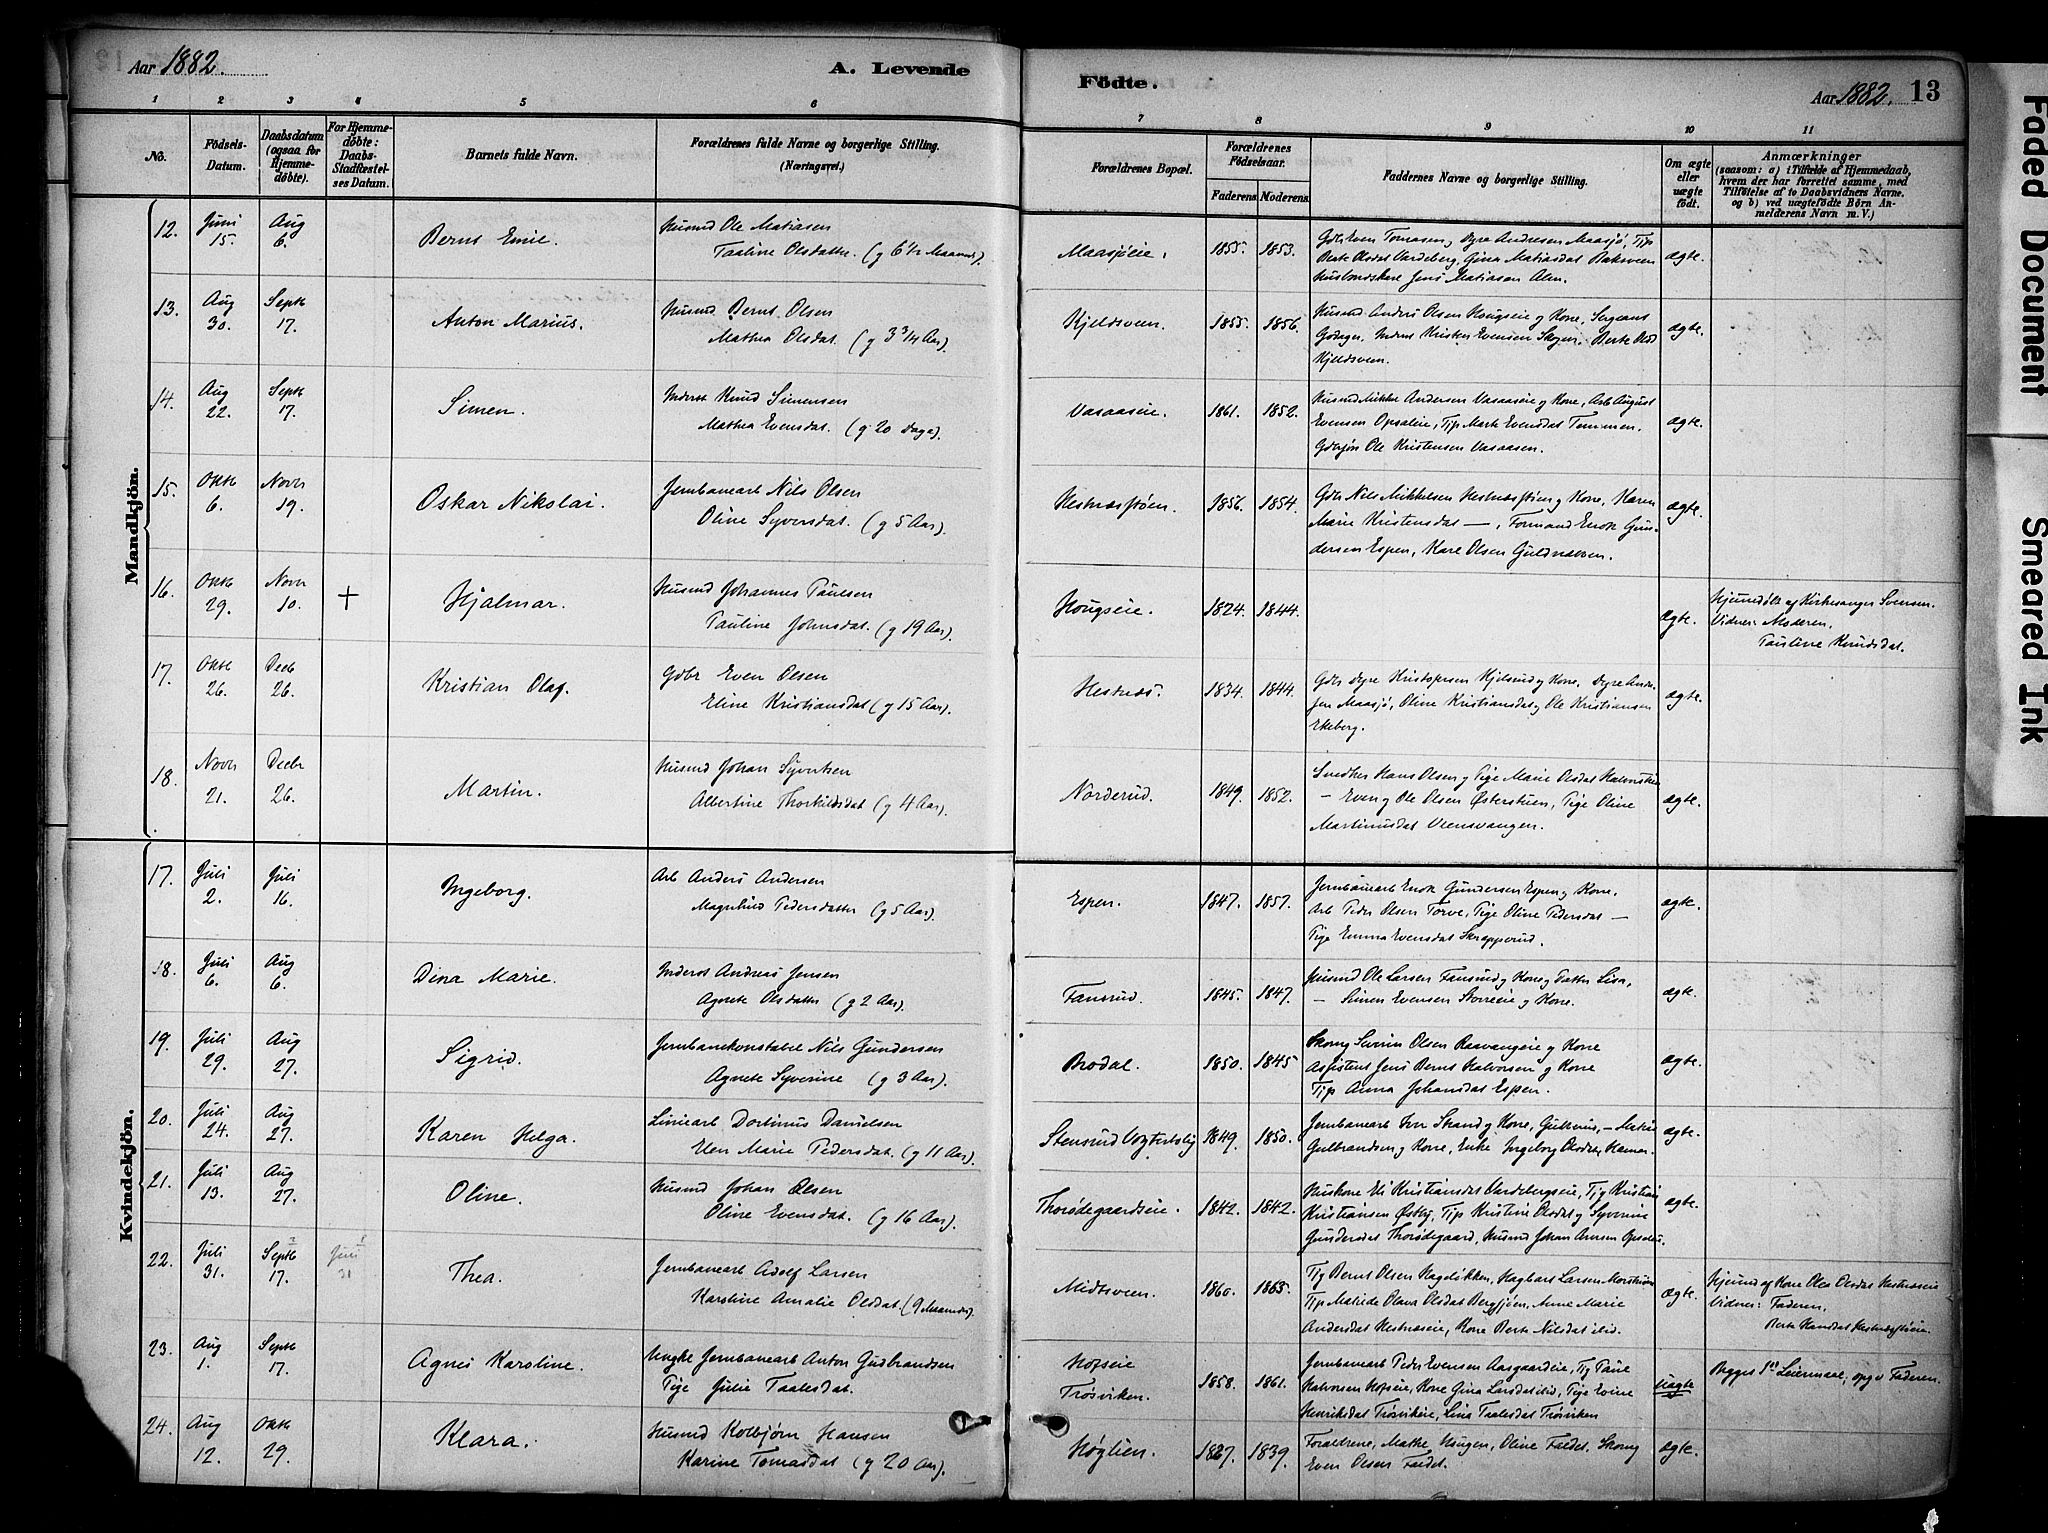 Aar 1882. A. Levende Fødte. Aar 1882. 13
1 2 3 4 5 6 7 8 9 10 11
No. Fødsels-Datum. Daabsdatum (ogsaa for Hjemmedøbte). For Hjemmedøbte: Daabs-Stadfæstelses Datum. Barnets fulde Navn. Forældrenes fulde Navne og borgerlige Stilling. (Næringsvei.) Forældrenes Bopæl. Forældrenes Fødselsaar. Faderens Moderens Faddernes Navne og borgerlige Stilling. Om ægte eller uægte født. Anmærkninger (saasom: a) i Tilfælde af Hjemmedaab, hvem der har forrettet samme, med Tilføielse af to Daabsvidners Navne. og b) ved uægtefødte Børn Anmelderens Navn m. V.)
Mandkjön.
12. Juni 15. Aug 6. Bernt Emil. Husmd Ole Matiasen
Pauline Olsdatter (g 6 1/2 Maaned). Maasjøeie. 1855. 1853. Gdbr Even Tomasen, Maasjø, Tip
Berte Olsdat Vardeberg, Gina Matiasdat Bakeveen
Jens Matiasen Alm. ægte.
13. Aug 30. Septb 17. Anton Marius. Husmd Bernt Olsen
Mathea Olsdat. (g 3 3/4 Aar). Kjeldsveen. 1855. 1856. Husmd Anders Olsen Hougseie og Kone, Sergeant
Inderst Kristen Evensen Skogen, Berte Olsd
Kjeldsveen. ægte.
14. Aug 22. Septb 17. Simen. Inderst Knud Simensen
Mathea Evensdat. (g 20 Dage). Vasaaseie. 1861. 1852. Husmd Mikkel Andersen Vasaaseie og Kone, Arb August
Evensen Opsaleie, Tip Marte Evensdat Tommen.
Gdbrsøn Ole Kristensen Vasaasen. ægte.
15. Oktb 6. Novbr 19. Oskar Nikolai. Jernbanearb Nils Olsen
Oline Syversdat. (g 5 Aar). Hestnæsstøen. 1856. 1854. Gdbr Nils Mikkelsen Hestnæsstøen og Kone, Karen
Marie Kristensdat —, Formand Enok Gun-
dersen Espen, Kare Olsen Guldnæsen. ægte.
16. Oktb 29. Novbr 10. + Hjalmar. Husmd Johannes Paulsen
Pauline Johnsdat. (g 19 Aar). Hougseie. 1824. 1844. ægte. Hjemdøbt af Kirkesanger Svensen.
Vidner: Moderen.
Pauline Knudsdat.
17. Oktb 26. Decb 26. Kristian Olaf. Gdbr Even Olsen
Eline Kristiansdat (g 15 Aar). Hestnæs. 1834. 1844. Gdbr Syver Kristofersen Hjelsrud og Kone. Syver Andre-
sen Maasjø, Oline Kristiansdat og Ole Kristiansen
Ekeberg. ægte.
18. Novbr 21. Decbr 26. Martin. Husmd Johan Syvertsen
Albertine Thorkildsdat (g 4 Aar). Norderud. 1849. 1852. Snedker Hans Olsen og Pige Marie Olsdat
— Even og Ole Olsen Østerstuen, Pige Oline
Martinusdat Veensvangen. ægte.
Kvindekjön.
17. Juli 2. Juli 16. Ingeborg. Arb Anders Andersen
Magnhild Pedersdatter (g 5 Aar). Espen. 1847. 1857. Jernbanearb Enok Gundersen Espen og Kone.
Arb Peder Olsen Torve, Pige Oline Pedersdat —
Pige Emma Evensdat Skrappsrud. ægte.
18. Juli 6. Aug 6. Dina Marie. Inderst Andreas Jensen
Agnete Olsdatter (g 2 Aar). Fansrud. 1845. 1847. Husmd Ole Larsen Fansrud og Kone og Datter Lisa,
— Simen Evensen Storreeie og Kone. ægte.
19. Juli 29. Aug 27. Sigrid. Jernbanekonstabel Nils Gundersen
Agnete Syverine (g 3 Aar). Brodal. 1850. 1845 Skomg Severin Olsen Raavangeie og Kone
Assistent Jens Bernt Halvorsen og Kone
Tip Anna Johansdat Espen. ægte.
20. Juli 24. Aug 27. Karen Helga. Liniearb Dortinus Danielsen
Elen Marie Pedersdat. (g 11 Aar). Stensrud Vogterbolig 1849. 1850. Jernbanearb Iver Strand og Kone,
Gulbrandsen og Kone, Enke Ingeborg Olsdtr, Hamar. ægte.
21. Juli 13. Aug 27. Oline. Husmd Johan Olsen
Oline Evensdat. (g 16 Aar). Thorødegaardseie. 1842. 1842. Huskone Eli Kristiansdat Vardebergseie, Tjg Kristian
Kristiansen Østby, Tip Kristine Olsdat og Syverine
Gundersdat Thorødegaard, Husmd Johan Arnesen ægte.
22. Juli 31. Septb 17. Juli 31 Thea. Jernbanearb Adolf Larsen
Karoline Amalie Olsdat (9 Maaneder). Midtsveen. 1860. 1865. Tjg Bernt Olsen Hageløkken, Hagbart Larsen
Tip Matilde Olava Olsdat Bergsjøen, Anne Marie
Andersdat Hestnæseie, Kone Berte Nilsdat ibid. ægte. Hjemd af Kone Olea Olsdat Hestnæseie
Vidner: Faderen.
Berte Hansdat Hestnæsstøeie.
23. Aug 1. Septb 17. Agnes Karoline. Ungke Jernbanearb Anton Gudbrandsen
Pige Julie Taalesdat. Hofseie
Trøsviken. 1858. 1861. Jernbanearb Peder Evensen Aasgaardeie, Tjg
Halvorsen Hofseie, Kone Gina Larsdat ibid, Pige Evine
Henriksdat Trøsvikeie, Lina Taalesdat Trøsviken Uægte Begges 1ste Leiermaal, opg v Faderen.
24. Aug 12. Oktb 29. Klara. Husmd Kolbjørn Hansen
Karine Tomasdat (g 20 Aar). Høglien. 1827. 1839. Forældrene, Mathe Haugen, Oline Faldet. Skomg
Even Olsen Faldet. ægte.
Faded Document Smeared Ink